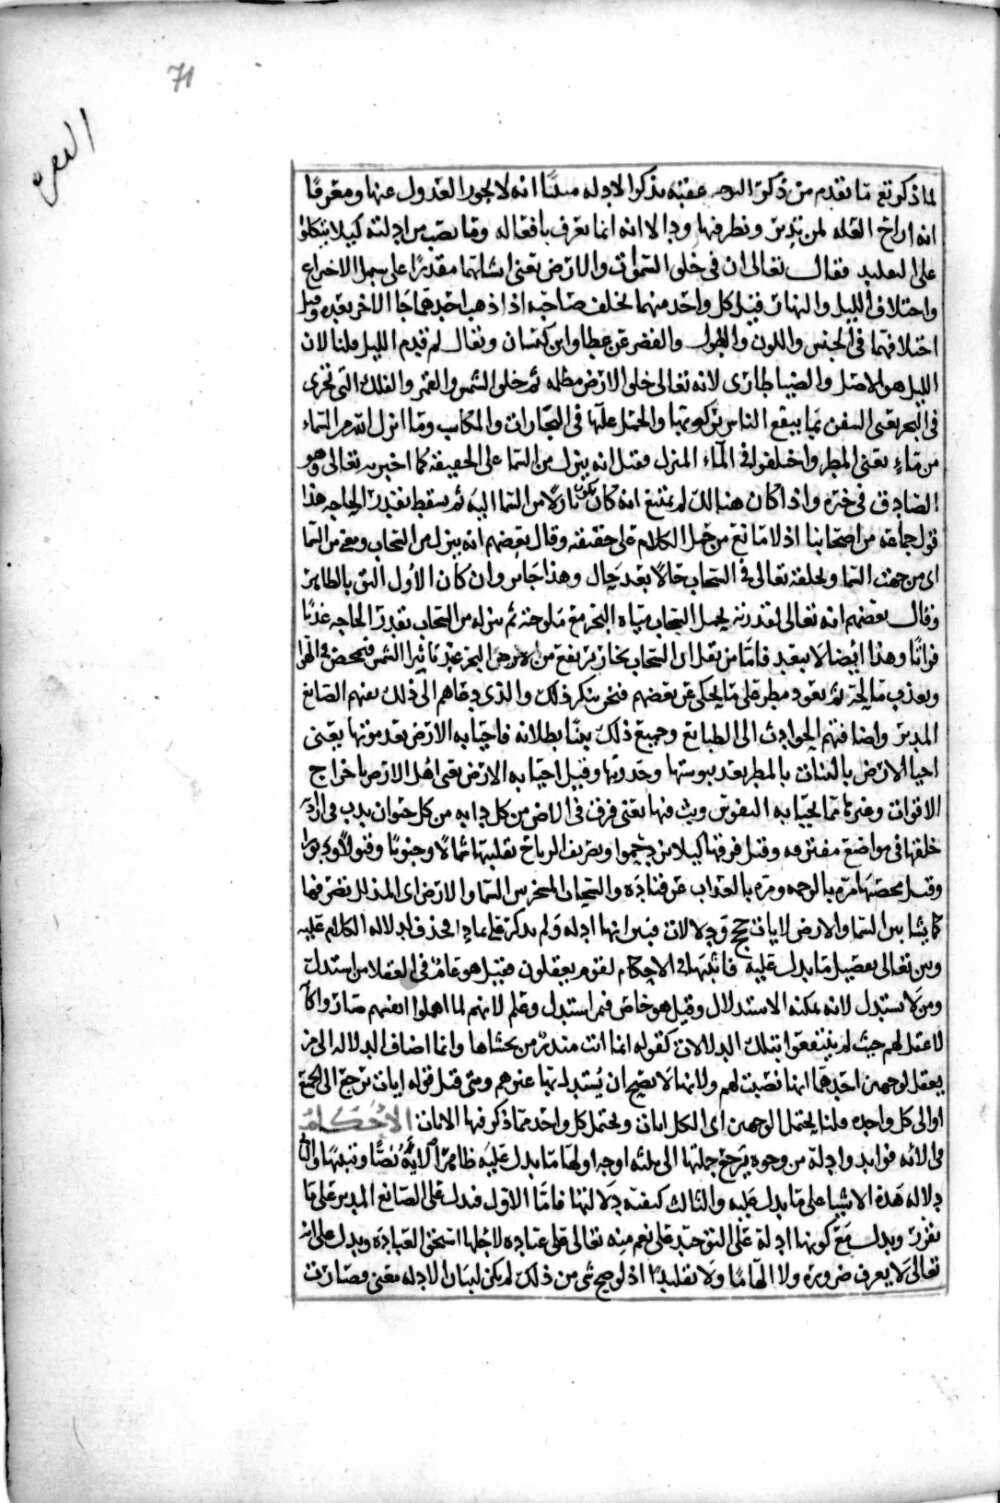 71
البقرة
لما ذكر تع ما تقدم من ذكر عقبه بذكر الادله مبينًا انه لا يجوز العدول عنها ومعرفًا
انه ازاح العله لمن تدبر ونظر فيها ودالا انه انما يعرف بافعاله وما نصب من ادلته كيلا يتكلوا
على التقليد فقال تعالى ان في خلق السموات والارض يعني انشائهما مقدرًا على سبيل الاختراع
واختلاف الليل والنهار قيل كل واحد منهما يخلف صاحبه اذا ذهب احدهما جا الاخر بعده وقيل
اختلافهما في الجنس واللون والطول والقصر عن عطا وابن كيسان ويقال لم قدم الليل قلنا لان
الليل هو الاصل والضيا طارى لانه تعالى خلق الارض مظلمه ثم خلق الشمس والقمر والفلك التي تجرى
في البحر يعني السفن بما ينفع الناس بركوبها والحمل عليها في التجارات والمكاسب وما انزل الله من السماء
من ماء يعني المطر واختلفوا في الماء المنزل فقيل انه ينزل من السما على الحقيقة كما اخبر به تعالى وهو
الصادق في خبره واذا كان هنالك لم يمتنع انه كان يكون نازلا من السما اليه ثم يسقط بقدر الحاجه هذا
قول جماعة من اصحابنا اذ لا مانع من حمل الكلام على حقيقته وقال بعضهم انه ينزل من السحاب ومعنى من السما
اى من جهت السما ويخلقه تعالى في السحاب حالا بعد حال وهذا جايز وان كان الاول اليق بالظاهر
وقال بعضهم انه تعالى لقدرته يحمل السحاب مياه البحر مع ملوحته ثم ينزله من السحاب بقدر الحاجه عذبًا
فراتًا وهذا ايضا لا يبعد فاما من يقدر ان السحاب بخار يرتفع من البحر عند تاثير الشمس في الهوا
ويعذب مالحه ثم يعود مطر على ما يحكى عن بعضهم فنحن ننكر ذلك والذي دعاهم الى ذلك نفيهم الصانع
المدبر واضافتهم الحوادث الى الطبائع وجميع ذلك بينا بطلانه فاحيا به الارض بعد موتها يعني
احيا الارض بالنبات بالمطر بعد يبوستها وجدوبتها وقيل احيا به الارض يعني اهل الارض باخراج
الاقوات وغيرها مما يحيا به النفوس وبث فيها يعني فرق في الارض من كل دابه من كل حيوان يدب في
خلقها في مواضع مفترقه وقيل فرقها كيلا يزدحموا وتصريف الرياح تقليبها شمالا وجنوبًا وقبولا ودبورا
وقيل مرة بالرحمه ومره بالعذاب عن قتاده والسحاب المسخر بين السما والارض اى المذلل تصرفها
كما يشا بين السما والارض لايات حجج ودلالات فبين انها ادله ولم يذكر على ماذا فحذف لدلاله الكلام عليه
وبين تعالى تفصيل ما يدل عليه فائبتها في الاحكام لقوم يعقلون فقيل هو عام في العقلا من استدل
ومن لا يستدل لانه يمكنه الاستدلال وقيل هو خاص فمن استدل وعلم لانهم لما اهملوا انفسهم صاروا كا
لا عقل لهم حيث لم ينتفعوا بتلك الدلالات كقوله انما انت منذر من يخشاها وانما اضاف الدلاله الى من
يعقل لوجهين احدهما انها نصبت لهم ولانها لا يصح ان يستدل بها غيرهم ومتى قيل قوله ايات ترجع الى الجمع
او الى كل واحده قلنا يحتمل الوجهين اى الكل ايات ويحتمل كل واحد مما ذكر فيها الايات الاحكام
في الايه فوايد وادلة من وجوه يرجع جملتها الى ثلثه اوجه اولها ما يدل عليه ظاهر الايه نصًا وتنبيهًا والثاني
دلاله هذه الاشيا على ما يدل عليه والثالث كيفيه دلالتها فاما الاول فتدل على الصانع المدبر على ما
نقرر ويدل مع كونها ادلة على التوحيد على نعم منه تعالى على عباده لاجلها استحق العباده ويدل على انه
تعالى لا يعرف ضروره ولا الهامًا ولا تقليدًا اذ لو صح شى من ذلك لم يكن لبيان الادله معنى وصارت